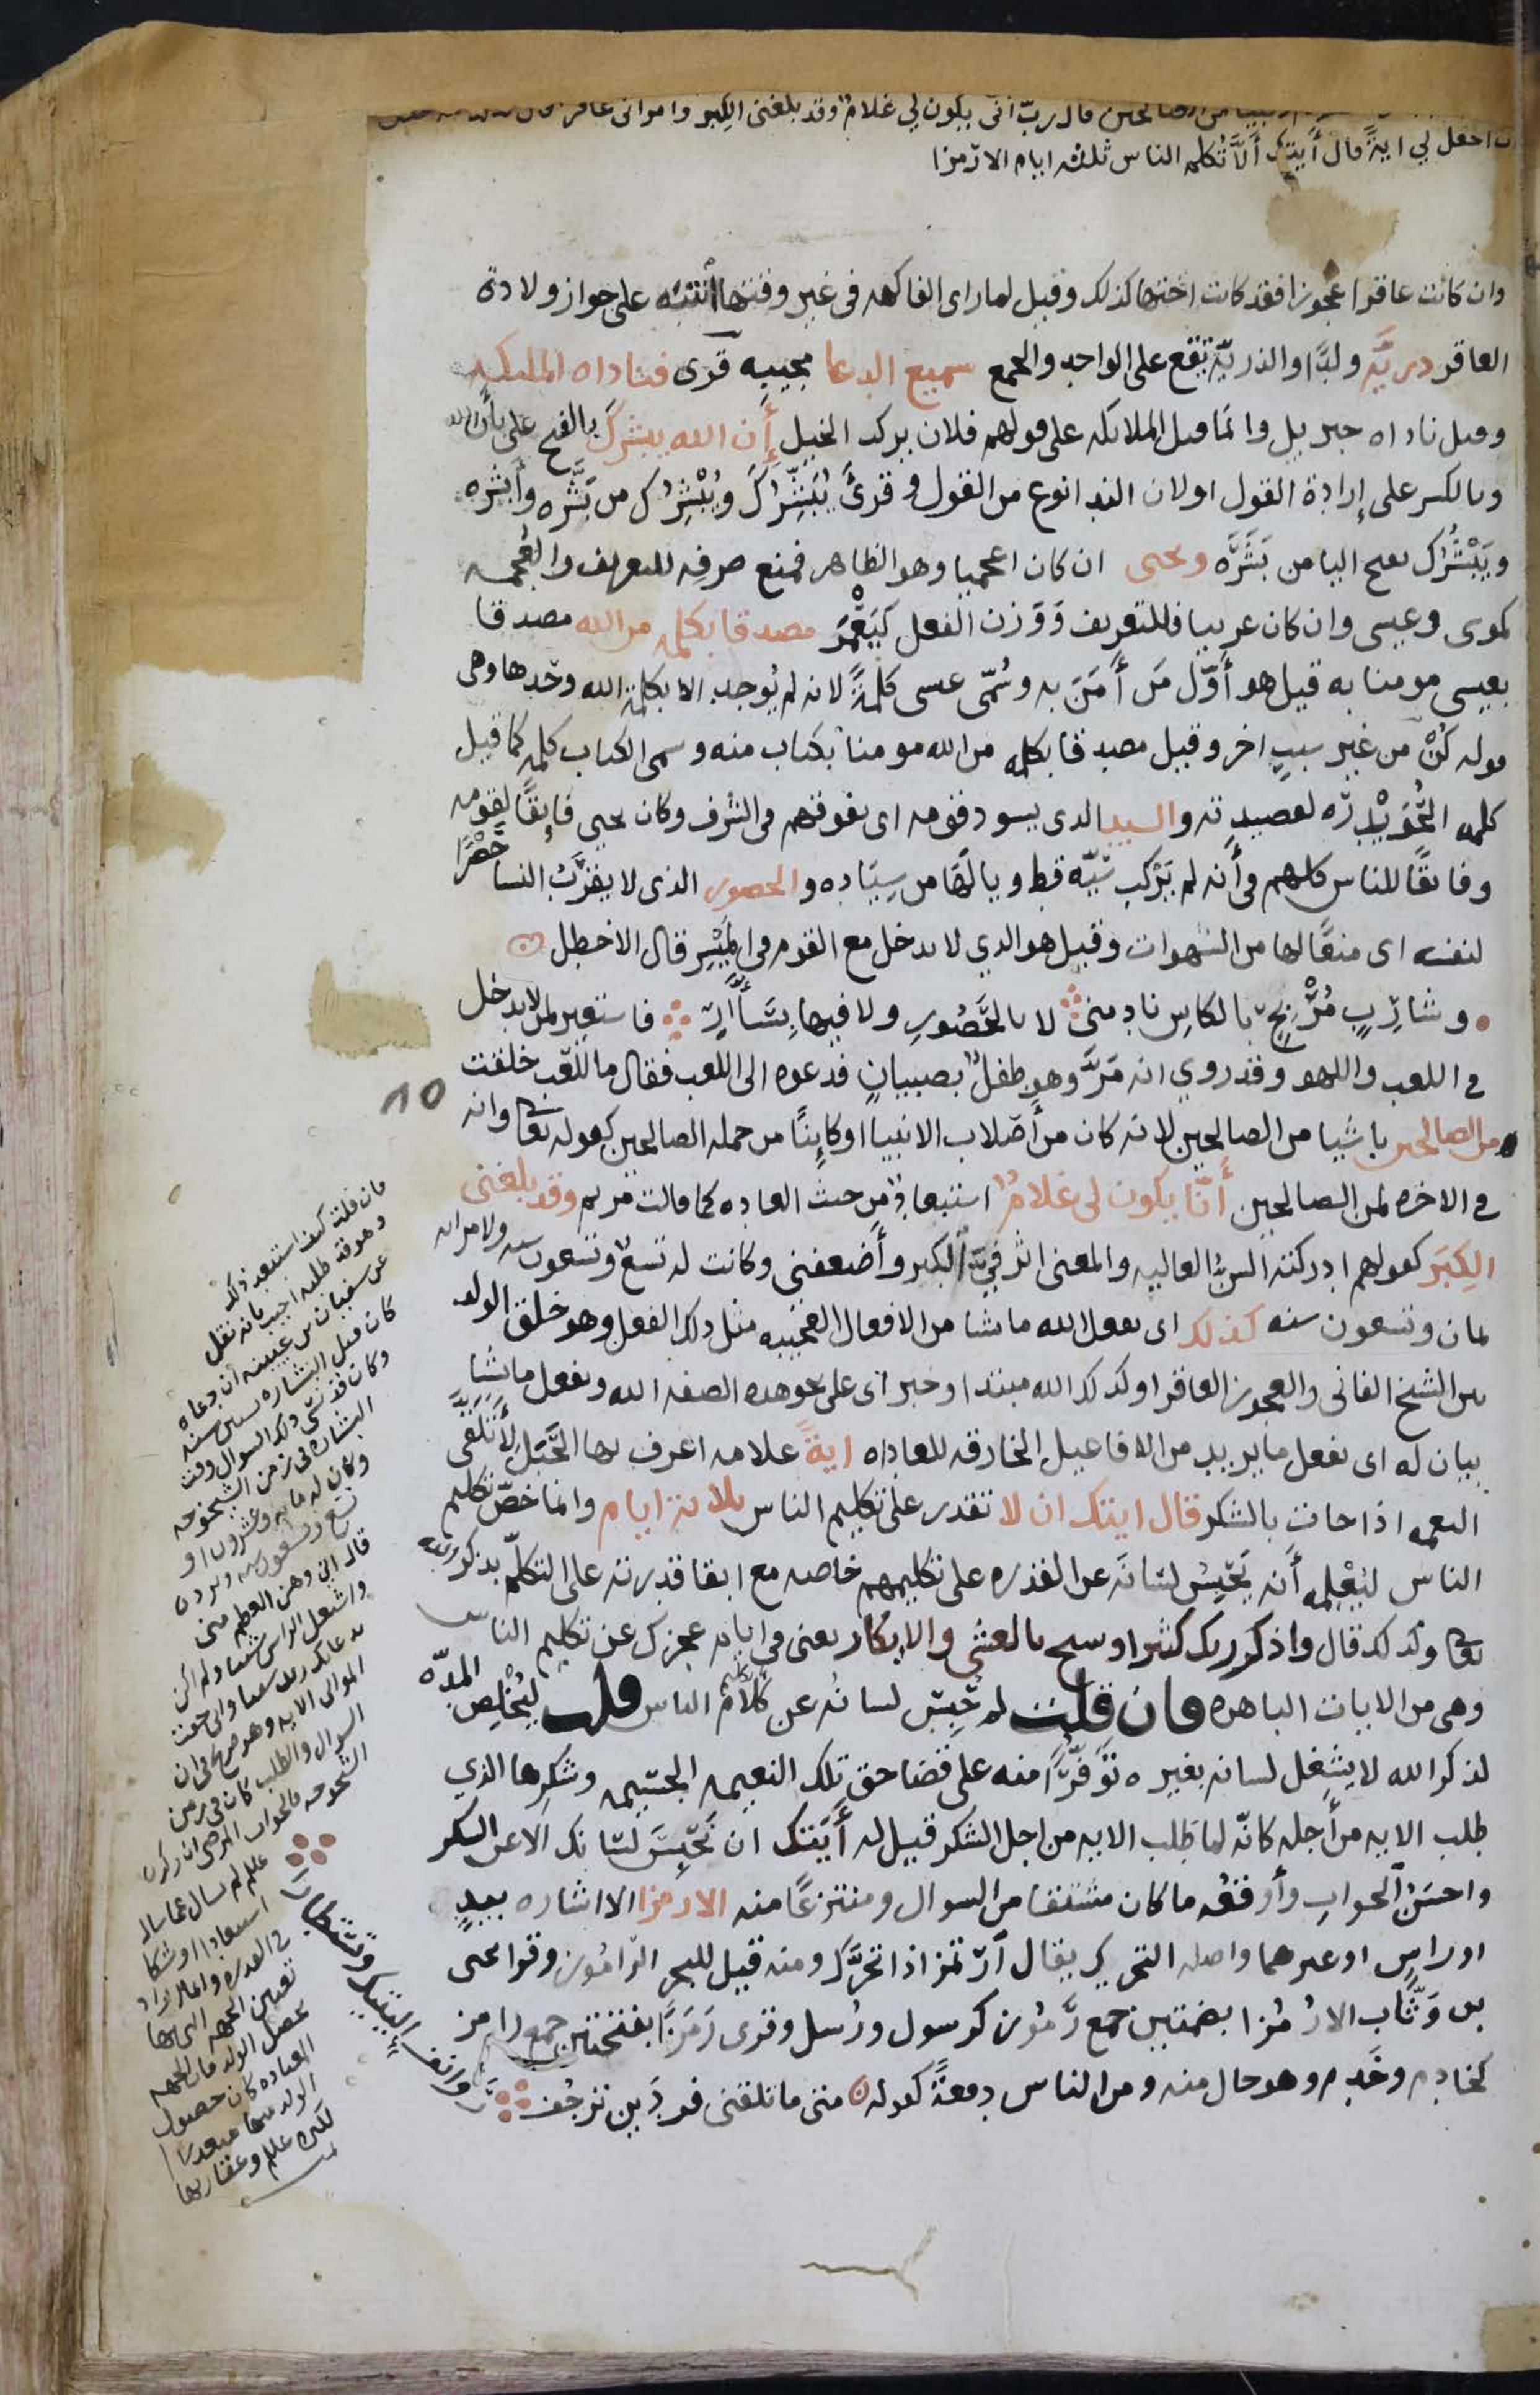 من الصالحين قال رب انى يكون لي غلام وقد بلغنى الكبر وامراتى عاقر
اجعل لي اية قال ايتك ألا تكلم الناس ثلثه ايام الا رمزا
وان كانت عاقرا عجوزا فقد كانت اختها كذلك وقيل لما راى الفاكهه فى غير وقتها انتبه على جواز ولادة
العاقر ذريَّة ولدًا والذريّة تقع على الواحد والجمع سميع الدعا مجيبه قرى فناداه الملىكه
وقيل ناداه جبريل وانما قيل الملائكه على قولهم فلان يركب الخيل أَن الله يبشرك بالفتح على بأن الله
وبالكسر على إرادة القول او لان الندا نوع من القول وقرئ يُبَشِّرُكَ ويُبْشِرُك من بَشَّره وأبشره
ويَبْشُرُك بفتح اليا من بَشَرَه ويحيى ان كان اعجميا وهو الظاهر فمنع صرفه للتعريف والعُجمه
كموسى وعيسى وان كان عربيا فللتعريف وَوَزن الفعل كيَعْمَرَ مصدقا بكلمه من الله مصدقا
بعيسى مومنا به قيل هو أوّل مَن أَمَنَ به وسُمّى عيسى كلمةً لانه لم يُوجد الا بكلمة الله وحْدها وهى
قوله كُنْ من غير سببٍ اخر وقيل مصدقا بكلمه من الله مومنا بكتاب منه وسمى الكتاب كلمه كما قيل
كلمه الحُوَيْدِرَه لقصيدته والسيد الذى يسود قومه اى يفوقهم فى الشرف وكان يحيى فايقًا لقومه
وفايقًا للناس كلهم فى أنه لم يَرْكب سَيّه قط ويا لَها من سِيَاده والحصور الذى لا يقرَبُ النسا حَصْرًا
لنفسه اى منعًا لها من الشهوات وقيل هو الذي لا يدخل مع القوم فى المَيْسِر قال الاخطل
وشارِبٍ مُرْبِحٍ بالكاسِ نادمنى لا بالحَصُورِ ولا فيها بِسَأَّارِ فاستعير لمن لا يدخل
في اللعب واللهو وقد روي انه مَرَّ وهو طفلٌ بصبيانٍ فدعوه الى اللعب فقال ما للّعب خلقت
من الصالحين ناشيا من الصالحين لانه كان من أصلاب الانبيا او كاينًا من جمله الصالحين كقوله تعا وانه
في الاخره لمن الصالحين أنّا يكون لى غلامٌ استبعادٌ من حيث العاده كما قالت مريم وقد بلغنى
الكِبَر كقولهم ادركته السنُّ العاليه والمعنى اثر فىَّ الكبر وأضعفنى وكانت له تسعٌ وتسعون سنه ولامراته
ثمان وتسعون سنه كذلك اى يفعل الله ما يشا من الافعال العجيبه مثل ذلك الفعل وهو خلق الولد
بين الشيخ الفانى والعجوز العاقر او كذلك الله مبتدا وخبر اى على نحو هذه الصفه الله ويفعل ما يشا
بيان له اى يفعل ما يريد من الافاعيل الخارقه للعاداه ايةً علامه اعرف بها الحَبَل لأتلقّى
النعمه اذا جات بالشكر قال ايتك ان لا تقدر على تكليم الناس ثلاثة ايام وانما خصّ تكليم
الناس ليُعْلِمه أَنه يَحْبِسُ لسانَه عن القدره على تكليمهم خاصه مع ابقا قدرته على التكلّم بذكر الله
تعا ولذلك قال واذكر ربك كثيرا وسبح بالعشى والابكار يعنى فى ايام عجزك عن تكليم الناس
وهى من الايات الباهره فان قلت لم حُبِس لسانُه عن كلام الناس قلت ليُخْلِصَ المدّه
لذكر الله لا يشغل لسانه بغيره تَوَفُّرًا منه على قضا حق تلك النعمه الجسيمه وشكرِها الذي
طلب الايه من أجله كانّه لما طلب الايه من اجل الشكر قيل له أَيَتك ان تُحْبَسَ لسانك الا عن الشكر
واحسَنُ الجوابِ وأوقعُه ما كان مشتقا من السوال ومنتزعًا منه الا رمزا الا اشاره بيدٍ
او راسٍ او غيرهما واصله التحرك يقال ارتمز اذا تحرَّك ومنه قيل للبحر الرّامُوز وقرا يحيى
بن وَثَّاب الا رُمُزا بضمتين جمع رَمُوز كرسول ورُسل وقرى رَمَزًا بفتحتين جمع رامز
كخادم وخَدم وهو حال منه ومن الناس دفعةً كقوله متى ما تلقنى فردَين ترجُف
روانف اليتيك وتستطارا
10
فان قلت كيف استبعد ذلك
وهو قد طلبه اجيب بانه نقل
عن سفيان بن عيينه أن دعاه
كان قبل البشاره بستين سنه
وكان قد نسى ذلك السوال وقت
البشاره فى زمن الشيخوخه
وكان له مايه وعشرون او
تسع وتسعون سنه
قال انى وهن العظم منى
واشتعل الراس شيبا ولم اكن
بدعائك رب شقيا وانى خفت
الموالى الايه وهو صريح فى ان
السوال والطلب كان فى زمن
الشيخوخه فالجواب المرضى ان زكريا
عللم لم يسال عما سال
استبعادا او شكا
في القدره وانما اراد
تعيين الجهه التى بها
يحصل الولد فان الجهه
العاده كان حصول
الولد منها مبعدا
لكبره عللم وعقارها